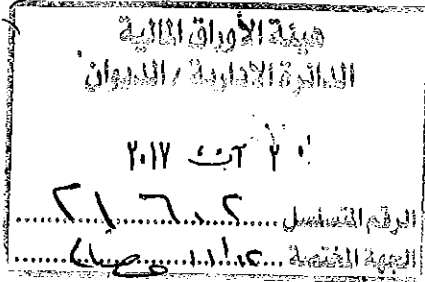 هيئة الأوراق المالية
الدائرة الادارية / الديوان
٢ آب ٢٠١٧
الرقم المتسلسل ٢١٦٠٢
الجهة المختصة